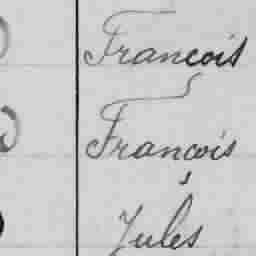 François
François
Jules